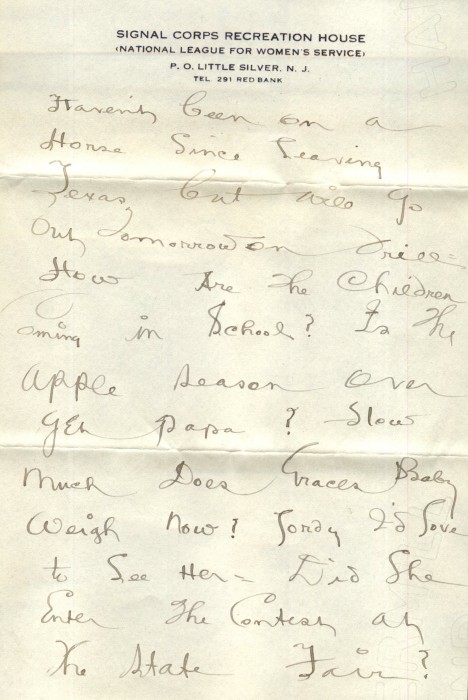 SIGNAL CORPS RECREATION HOUSE
(NATIONAL LEAGUE FOR WOMEN'S SERVICE)
P. O. LITTLE SILVER, N. J.
TEL 291 RED BANK
Haven't been on a
Horse Since Leaving
Texas, but will go
Out Tomorrow on Drill=
How Are The Children
Coming in School? Is The
Apple Season Over
Yet Papa? How
Much Does Graces Baby
Weigh Now? Lordy I'd Love
to See Her= Did She
Enter The Contest at
The State Fair?